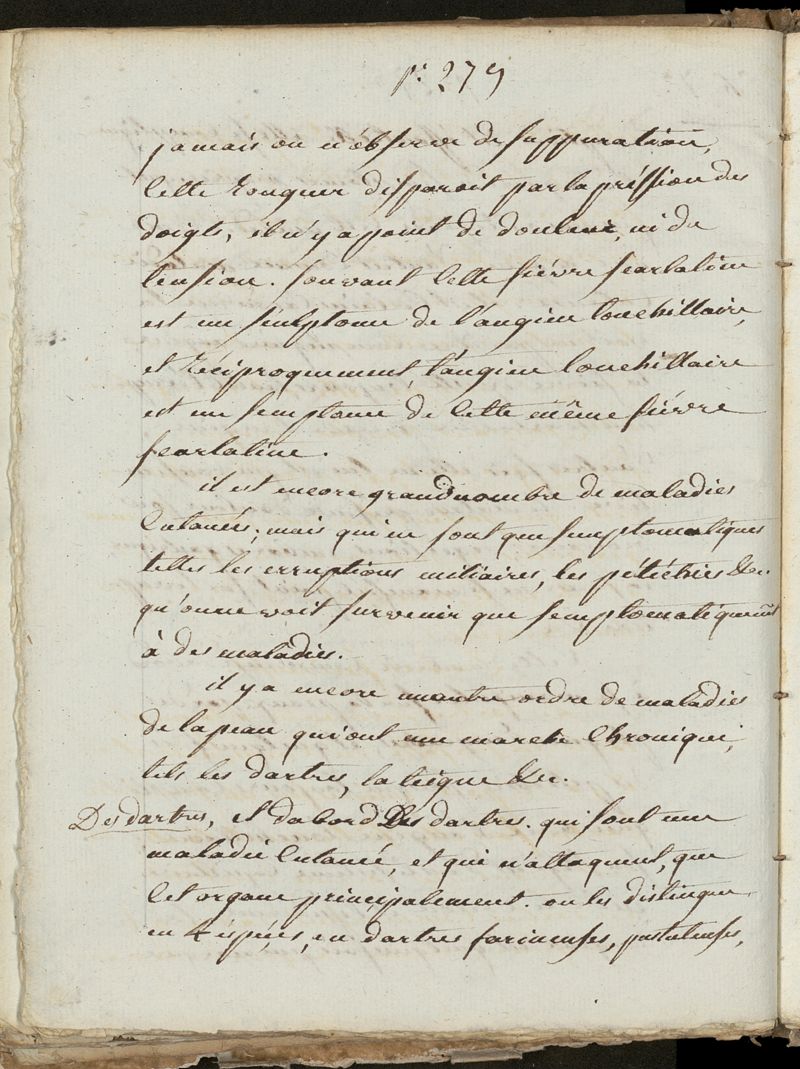 p: 279
jamais on n'observe de suppuration,
Cette rouguer disparoit par la préssion des
doigts, il n'y a point de douleur, ni de
tension. souvant Cette fiévre scarlatine
est un simptome de l'angine Couehillaire,
et réciproquement, l'angine Couehillaire
est un semptome de Cette même fiévre
scarlatine.
il est encore grand nombre de maladies
Cutanées; mais qui ne sont que semptomatiques
telles les erruptions miliaires, les pétiéchies &c.
qu'on ne voit survenir que semptomatiquemt
à des maladies.
il y a encore un autre ordre de maladies
de la peau qui ont une marche Chronique,
tels les dartres, la teigne &c.
Des dartres, et d'abord Des dartres. qui sont une
maladie Cutaneé, et qui n'attaquent, que
Cet organe principalement. on les distingue
en 4 éspéces, en dartres farineuses, pustuleuses,